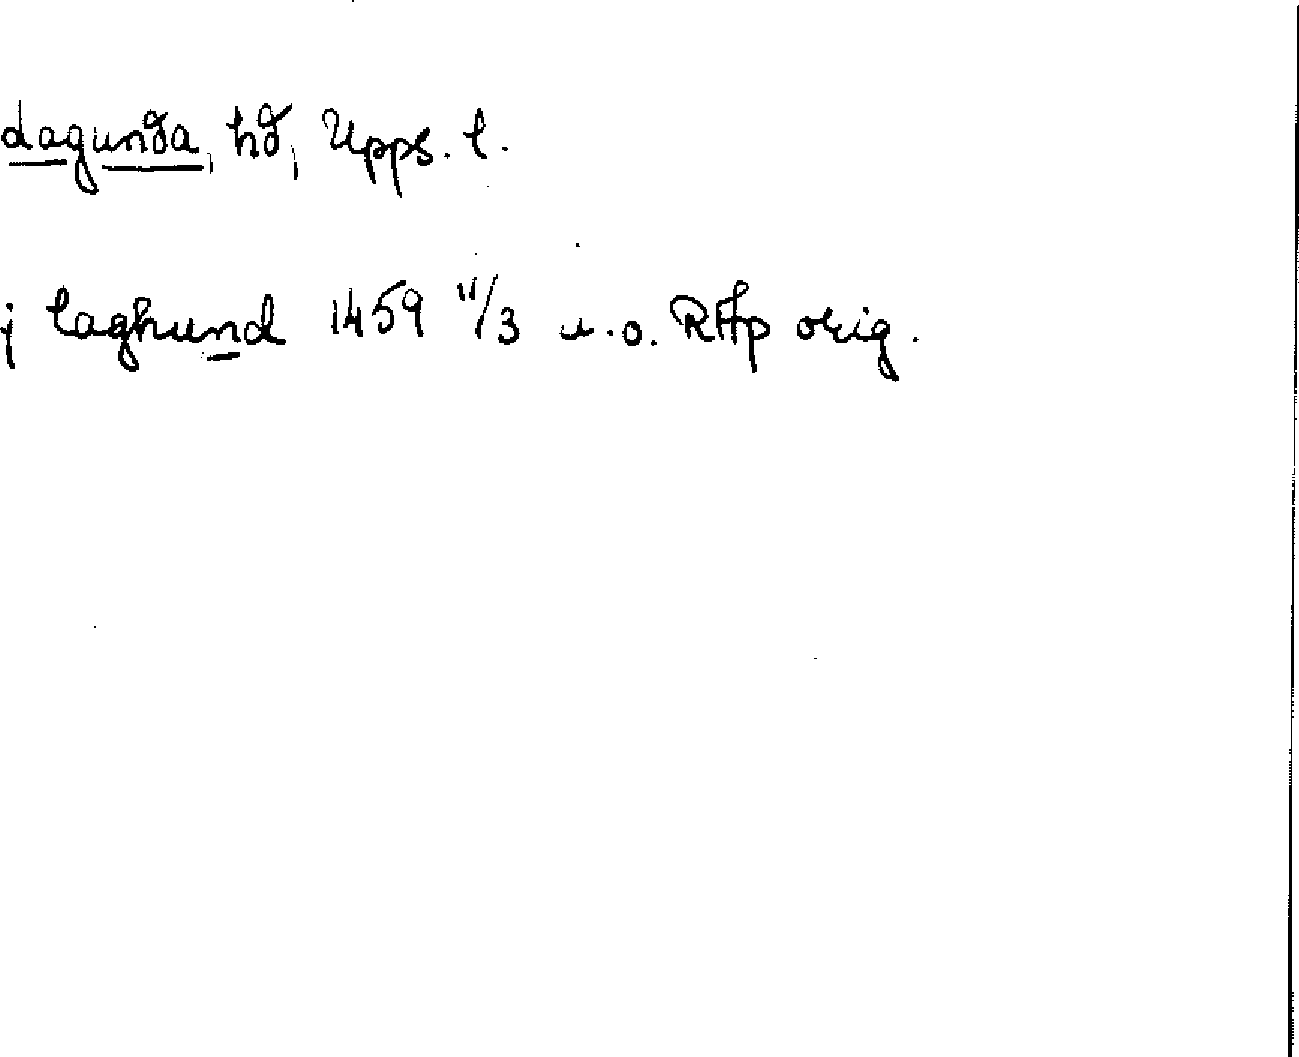 dagunda, hd, Upps. l.
j laghund 1459 11/3 u.o. RAp orig.